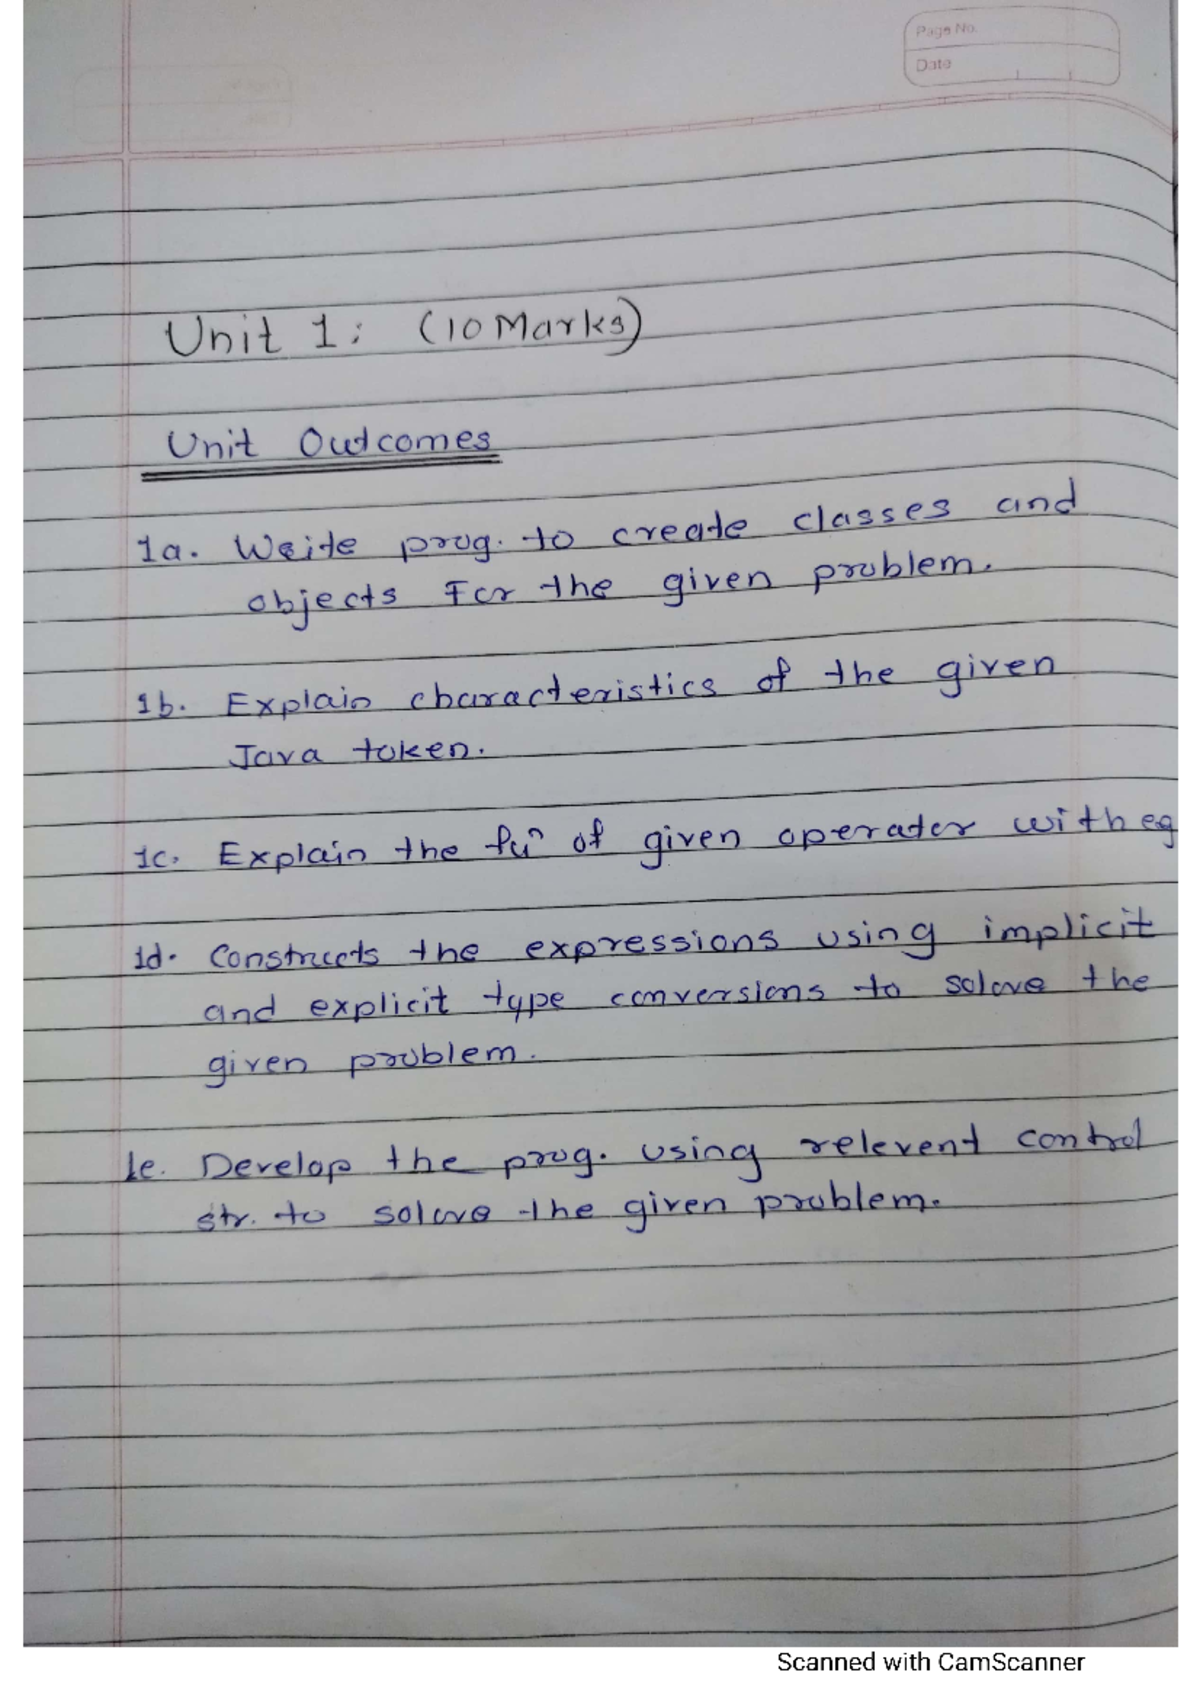 Page No.
Date
Unit 1: (10 Marks)
Unit Outcomes
1a. Write prog. to create classes and
objects For the given problem.
1b. Explain characteristics of the given
Java token.
1c. Explain the fuⁿ of given operator with eg
1d. Constructs the expressions using implicit
and explicit type conversions to solove the
given problem.
1e. Develop the prog. using relevent control
str. to solove the given problem.
Scanned with CamScanner